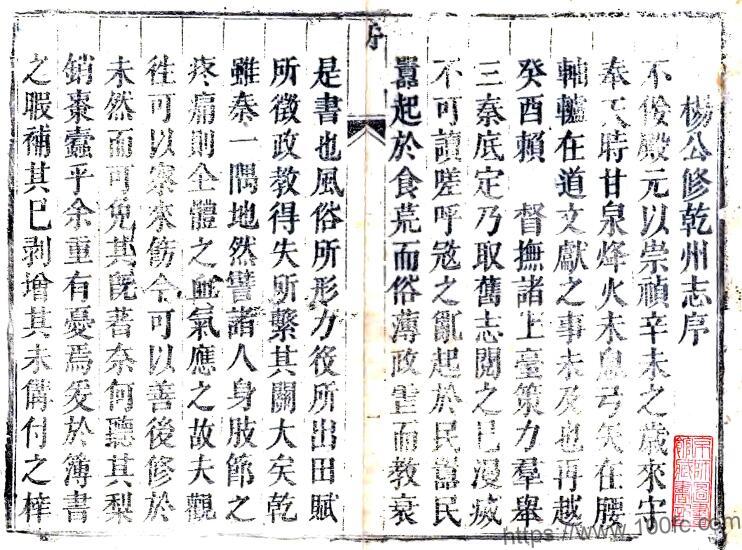 楊公修乾州志序
不佞殿元以崇禎辛未之歲來守
奉天時甘泉烽火未息弓矢在腰
軸轤在道文獻之事未及也再越
癸酉賴 督撫諸上臺策力羣舉
三秦底定乃取舊志閲之已漫㓕
不可讀嗟呼寇之亂起於民囂民
囂起於食荒而俗薄政䨓而教衰
序
是書也風俗所形力役所出田賦
所徵政教得失所繫其關大矣乾
雖秦一隅地然譬諸人身肢節之
疼痛則全體之血氣應之故夫觀
徃可以察來飭今可以善後修於
未然而可免其旣著奈何聽其梨
銷棗蠹乎余重有憂焉爰於簿書
之暇補其已剥增其未備付之梓
https://www.100rc.com